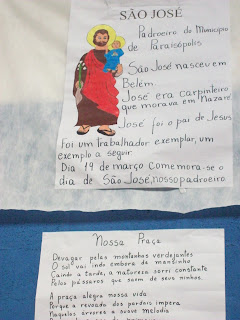 SÃO JOSÉ
Padroeiro do Município
de Paraisópolis
São José nasceu em
Belém
José era carpinteiro
que morava em Nazaré
José foi o pai de Jesus
Foi um trabalhador exemplar, um
exemplo a seguir
Dia 19 de março comemora-se o
dia de São José, nosso padroeiro
Nossa Praça
Devagar pelas montanhas verdejantes
O sol vai indo embora de mansinho
Caindo a tarde, a natureza sorri constante
Pelos pássaros que soam de seus ninhos.
A praça alegra nossa vida
Porque a revoada dos pardais impera
Naquelas árvores a suave melodia